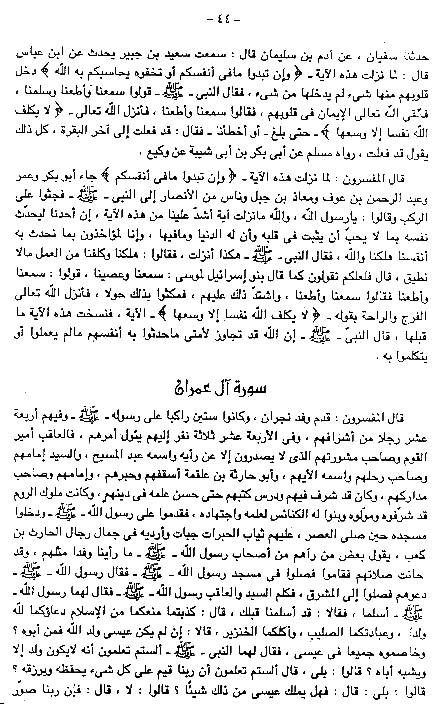 - ٤٤ -
حدثنا سفيان ، عن آدم بن سليمان قال : سمعت سعيد بن جبير يحدث عن ابن عباس
قال : لما نزلت هذه الآية ـ ﴿ وإن تبدوا مافى أنفسكم أو تخفوه يحاسبكم به الله ﴾ دخل
قلوبهم منها شىء لم يدخلها من شىء ، فقال النبى ـ ﷺ ـ قولوا سمعنا وأطعنا وسلمنا ،
فألقى الله تعالى الإيمان فى قلوبهم ، فقالوا سمعنا وأطعنا ، فأنزل الله تعالى ـ ﴿ لا يكلف
الله نفسا إلا وسعها ﴾ ـ حتى بلغ ـ أو أخطأنا ـ فقال : قد فعلت إلى آخر البقرة ، كل ذلك
يقول قد فعلت ، رواه مسلم عن أبى بكر بن أبى شيبة عن وكيع .
قال المفسرون : لما نزلت هذه الآية ـ ﴿ وإن تبدوا مافى أنفسكم ﴾ جاء أبو بكر وعمر
وعبد الرحمن بن عوف ومعاذ بن جبل وناس من الأنصار إلى النبى ـ ﷺ ـ فجثوا على
الركب وقالوا : يارسول الله ، والله مانزلت آية أشد علينا من هذه الآية ، إن أحدنا ليحدث
نفسه بما لا يحب أن يثبت فى قلبه وأن له الدنيا ومافيها ، وإنا لمؤاخذون بما نحدث به
أنفسنا هلكنا والله ، فقال النبى ـ ﷺ ـ هكذا أنزلت ، فقالوا : هلكنا وكلفنا من العمل مالا
نطيق ، قال فلعلكم تقولون كما قال بنو إسرائيل لموسى : سمعنا وعصينا ، قولوا : سمعنا
وأطعنا فقالوا سمعنا وأطعنا ، واشتد ذلك عليهم ، فمكثوا بذلك حولا ، فأنزل الله تعالى
الفرج والراحة بقوله ـ ﴿ لا يكلف الله نفسا إلا وسعها ﴾ ـ الآية ، فنسخت هذه الآية ما
قبلها ، قال النبى ـ ﷺ ـ إن الله قد تجاوز لأمتى ماحدثوا به أنفسهم مالم يعملوا أو
يتكلموا به .
سورة آل عمران
قال المفسرون : قدم وفد نجران ، وكانوا ستين راكبا على رسوله ـ ﷺ ـ وفيهم أربعة
عشر رجلا من أشرافهم ، وفى الأربعة عشر ثلاثة نفر إليهم يئول أمرهم ، فالعاقب أمير
القوم وصاحب مشورتهم الذى لا يصدرون إلا عن رأيه واسمه عبد المسيح ، والسيد إمامهم
وصاحب رحلهم واسمه الأيهم ، وأبو حارثة بن علقمة أسقفهم وحبرهم ، وإمامهم وصاحب
مدارسهم ، وكان قد شرف فيهم ودرس كتبهم حتى حسن علمه فى دينهم ، وكانت ملوك الروم
قد شرفوه ومولوه وبنوا له الكنائس لعلمه واجتهاده ، فقدموا على رسول الله ـ ﷺ ـ ودخلوا
مسجده حين صلى العصر ، عليهم ثياب الحبرات جبات وأرديه فى جمال رجال الحارث بن
كعب ، يقول بعض من رآهم من أصحاب رسول الله ـ ﷺ ـ ما رأينا وفدا مثلهم ، وقد
حانت صلاتهم فقاموا فصلوا فى مسجد رسول الله ـ ﷺ ـ فقال رسول الله ـ ﷺ ـ
دعوهم فصلوا إلى المشرق ، فكلم السيد والعاقب رسول الله ـ ﷺ ـ فقال لهما رسول الله ـ
ﷺ ـ أسلما ، فقالا : قد أسلمنا قبلك ، قال : كذبتما منعكما من الإسلام دعاؤكما لله
ولدا ، وعبادتكما الصليب ، وأكلكما الخنزير ، قالا : إن لم يكن عيسى ولد الله فمن أبوه ؟
وخاصموه جميعا فى عيسى ، فقال لهما النبى ـ ﷺ ـ ألستم تعلمون أنه لايكون ولد إلا
ويشبه أباه ؟ قالوا : بلى ، قال ألستم تعلمون أن ربنا قيم على كل شىء يحفظه ويرزقه ؟
قالوا : بلى : قال : فهل يملك عيسى من ذلك شيئا ؟ قالوا : لا ، قال : فإن ربنا صور